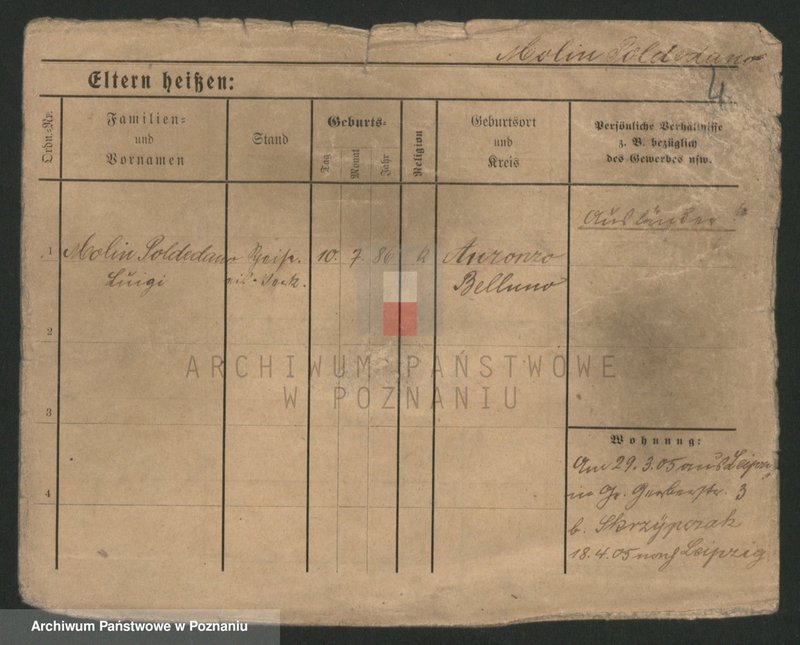 Molin Poldedano
4
Eltern heißen:
Ordn.-Nr.
Familien=
und
Vornamen
Stand
Geburts=
Tag
Monat
Jahr
Religion
Geburtsort
und
Kreis
Persönliche Verhältnisse
z. B. bezüglich
des Gewerbes usw.
Ausländer
1 Molin Poldedano 10. 7. 86 Auronzo
Luigi Belluno
2
3
4
Wohnung:
Am 29.3.05 aus Leipzig
Gr. Gerberstr. 3
b. Skrzypczak
18.4.05 nach Leipzig
ARCHIWUM PAŃSTWOWE
W POZNANIU
Archiwum Państwowe w Poznaniu